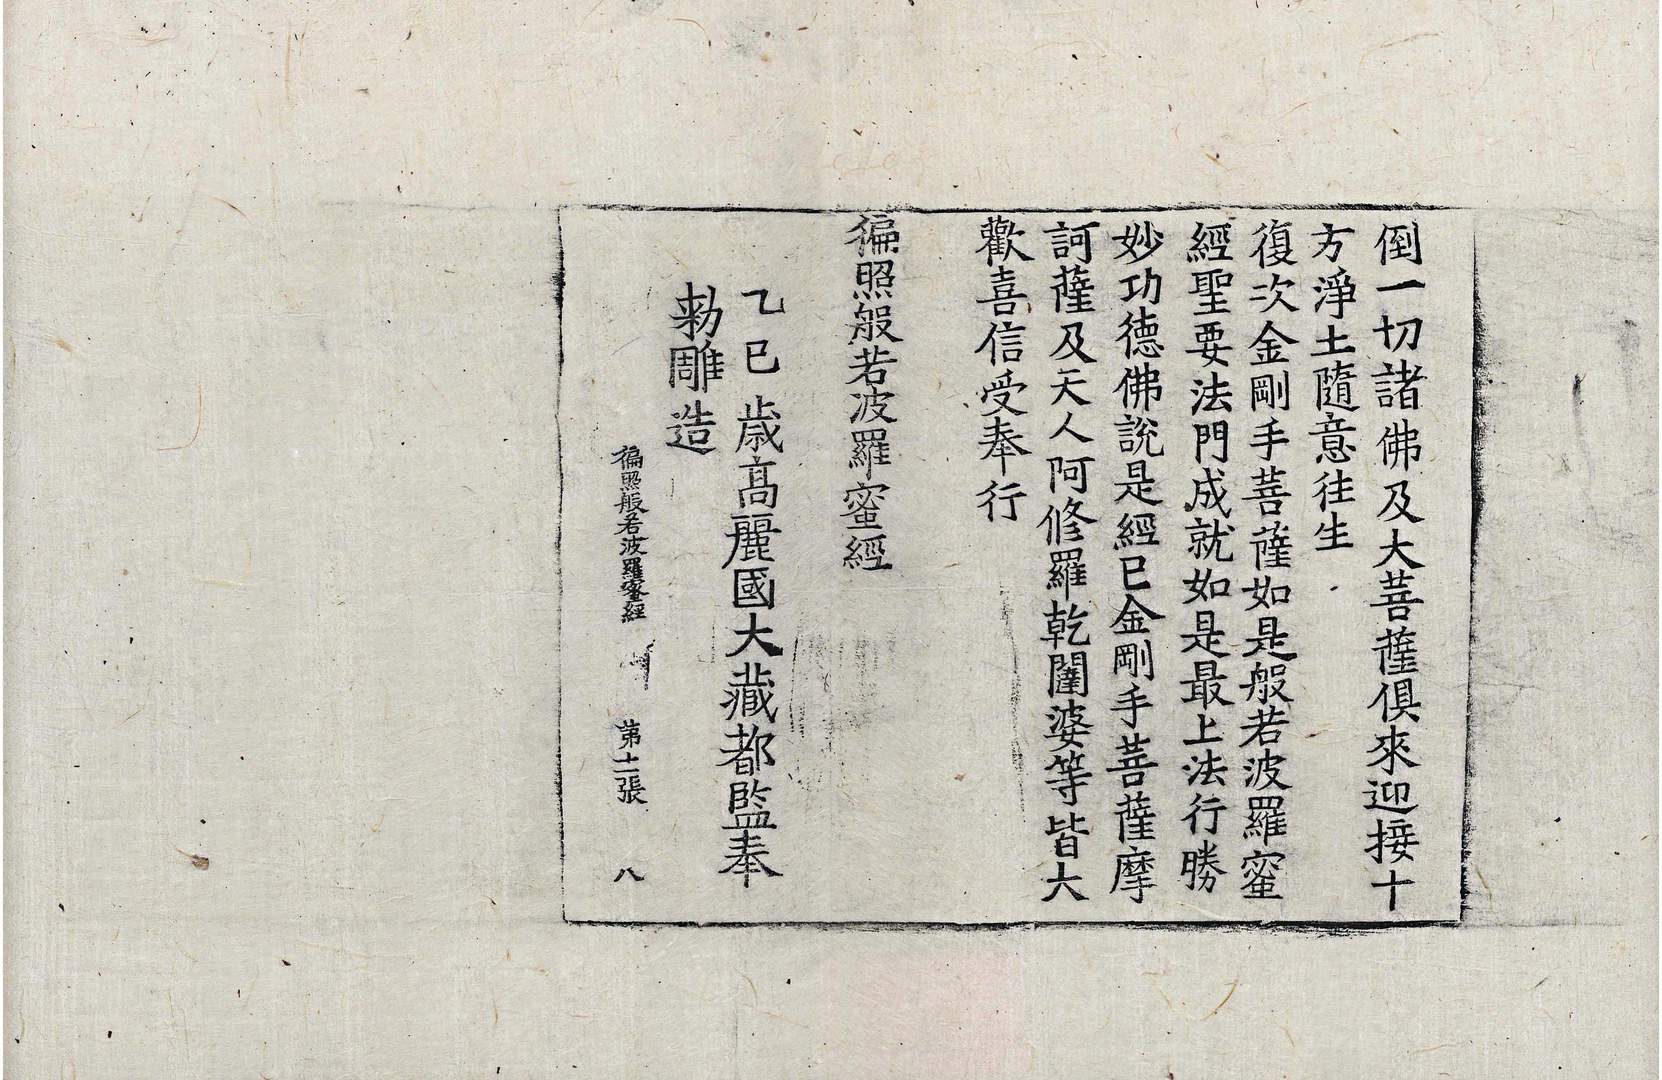 倒一切諸佛及大菩薩俱來迎接十
方淨土隨意往生
復次金剛手菩薩如是般若波羅蜜
經聖要法門成就如是最上法行勝
妙功德佛說是經已金剛手菩薩摩
訶薩及天人阿修羅乾闥婆等皆大
歡喜信受奉行
徧照般若波羅蜜經
乙巳歲高麗國大藏都監奉
勑雕造
徧照般若波羅蜜經 第十一張 八